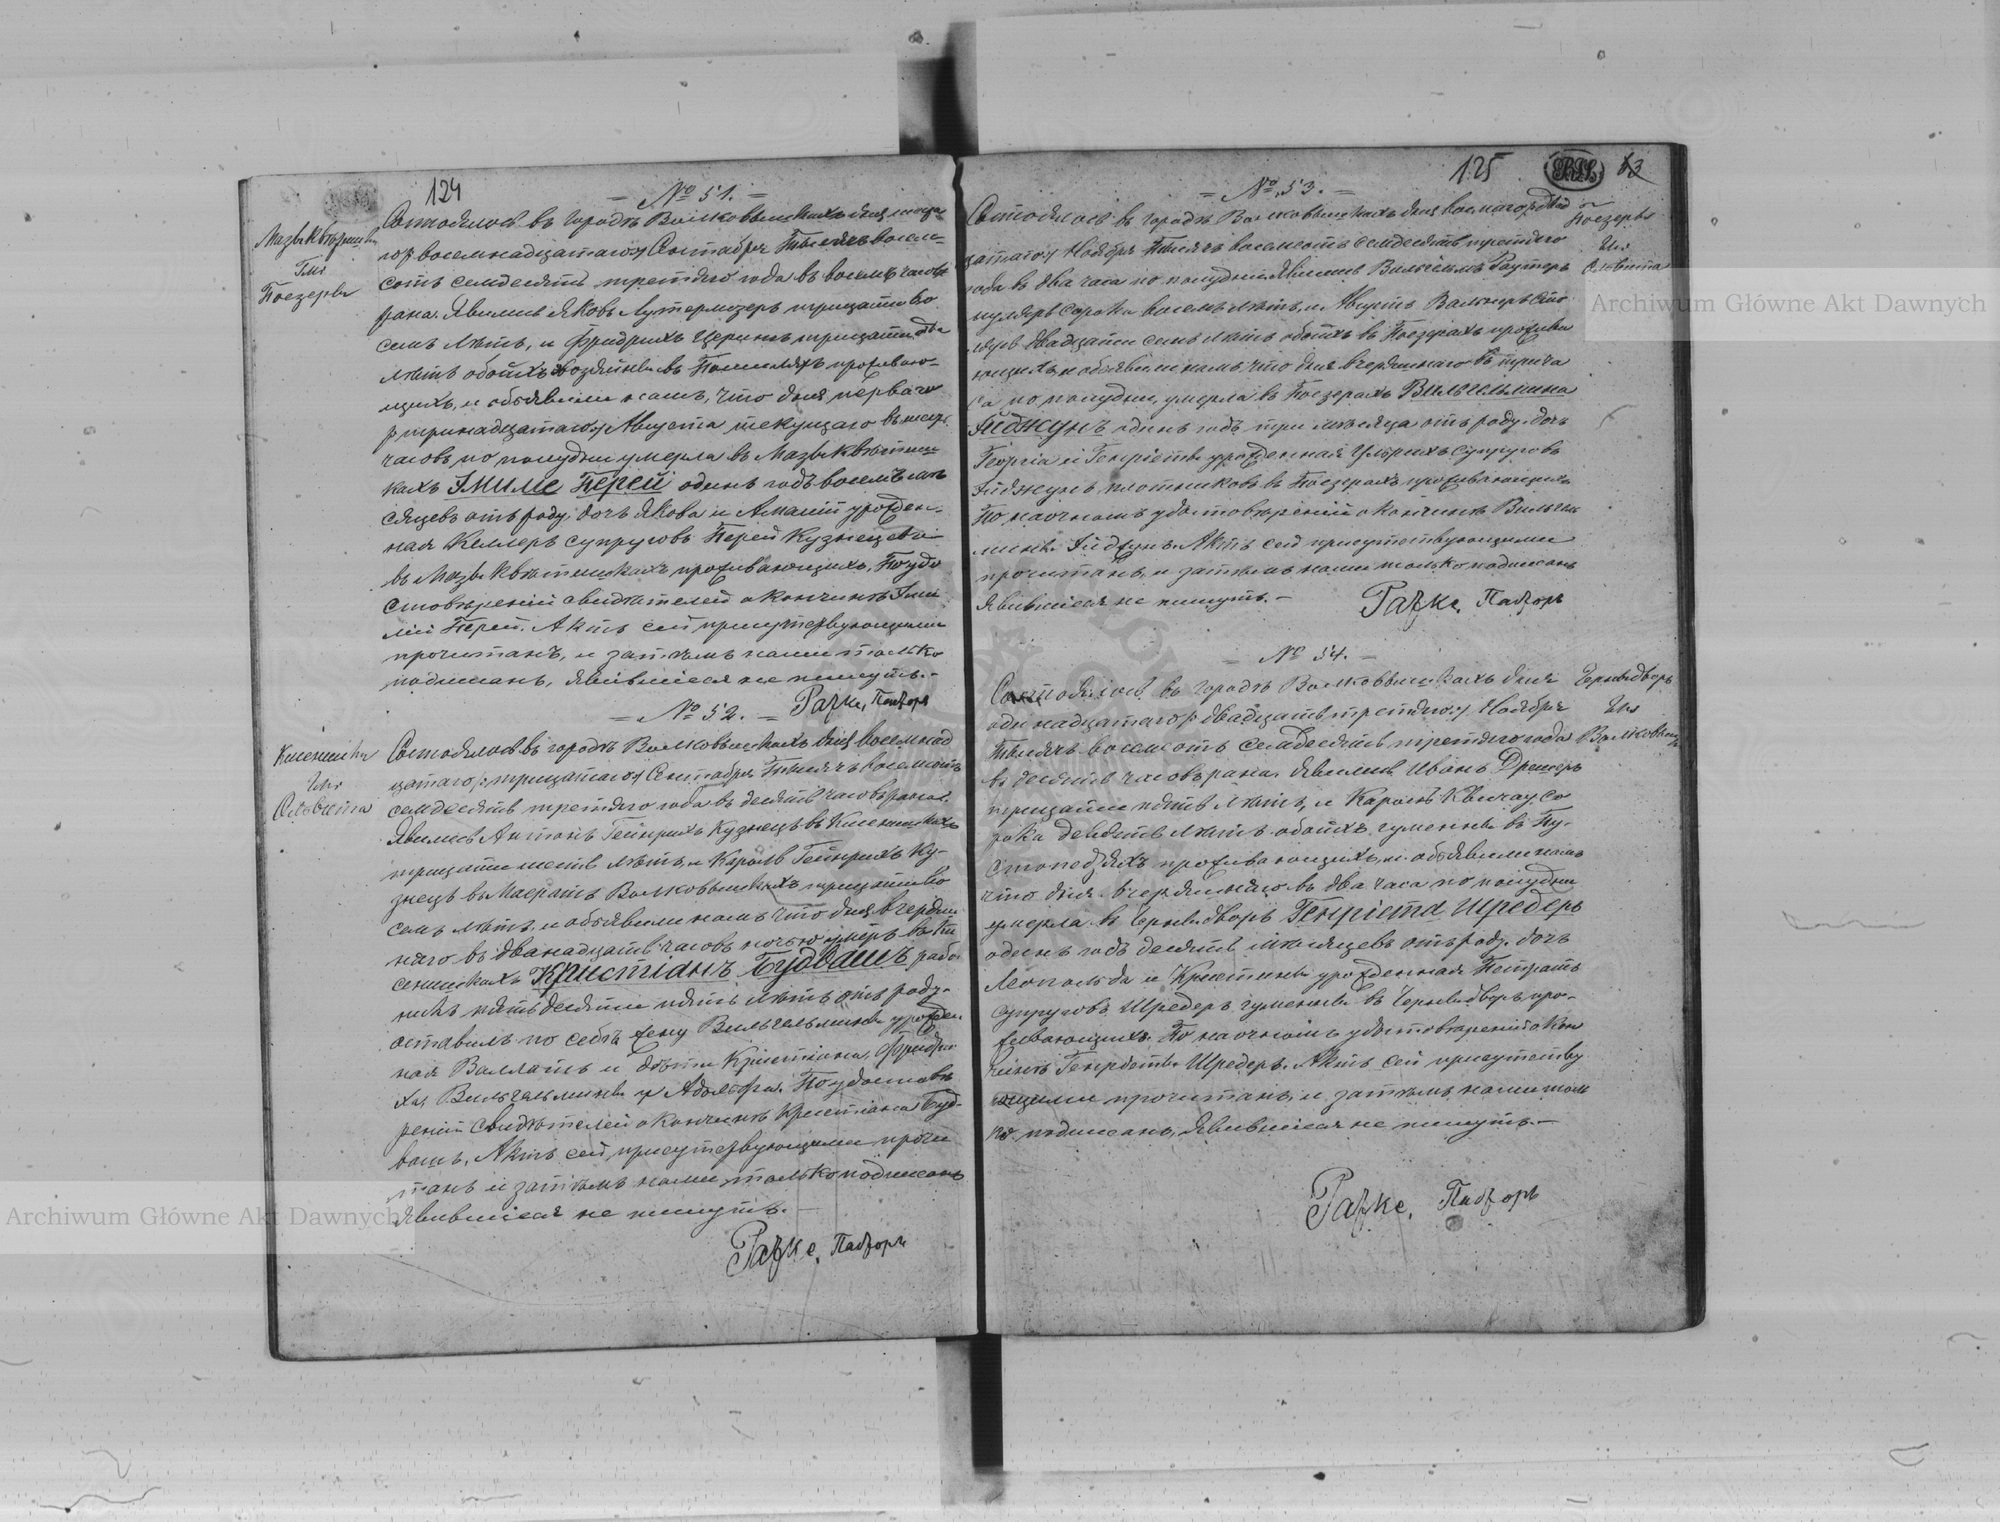 124
— № 51. —
Состоялось въ городѣ Волковышкахъ дня
восемнадцатаго Сентября Тысяча восемь-
сотъ семдесятъ третьяго года въ восемь часовъ
рана. Явились Яковъ Лутермозеръ тридцати во
семь лѣтъ, и Фридрихъ тридцати два
лѣтъ обоихъ хозяйны въ проживаю-
щихъ, и объявили намъ, что дня перваго
тринадцатаго Августа текущаго въ
часовъ по полудни умерла въ Мазыквѣтиш-
кахъ Эмиле Перей одинъ годъ восемь мѣ
сяцевъ отъ роду, дочь Якова и Амалии урожден-
ная Келлеръ супруговъ Перей Кузнецовъ
въ Мазыквѣтишкахъ проживающихъ, По удо
стовѣреніи свидѣтелей о кончинѣ Эми
ліи Перей. Актъ сей присутствующими
прочитанъ, и затѣмъ нами только
подписанъ, Явившіеся не пишутъ.-
Ражке, Падзоръ
Мазыквѣтишки
Гми
Поезеры
— № 52. —
Состоялось въ городѣ Волковышкахъ дня восемнад
цатаго тридцатаго Сентября Тысяча восемсотъ
семдесятъ третьяго года въ десять часовъ рана.
Явились Антонъ Гейнрихъ Кузнецъ въ
тридцати шесть лѣтъ, и Кароль Гейнрихъ Ку-
знецъ въ Маератѣ Волковышкахъ тридцати во
семь лѣтъ, и объявили намъ что дня вчераш
няго въ дванадцать часовъ ночью умеръ въ Ки
сенишкахъ Кристіанъ Будвашъ рабо
никъ пятьдесяти пять лѣтъ отъ роду,
оставилъ по себѣ жену Вильгельмины урожден
ная Валлатъ и дѣти Крістіана, Фридри
ха, Вильгельмины и Адольфа. По удостовѣ
реніи свидѣтелей о кончинѣ Кристіана Буд-
вашъ, Актъ сей присутствующими прочи
танъ и затѣмъ нами только подписанъ
Явившіеся не пишутъ. —
Ражке, Падзоръ
Кисенишки
Гми
Ольвита
125
63
— № 53. —
Состоялось въ городѣ Волковышкахъ дня восмаго двад
цатаго Ноября Тысяча восемсотъ семдесятъ третьяго
года въ два часа по полудни Явились Вильгельмъ Раутеръ
муляръ сорока восемь лѣтъ, и Августъ Вагнеръ сто
ляръ двадцати семь лѣтъ обоихъ въ Поезерахъ прожива
ющихъ, и объявили намъ что дня вчерашняго въ три ча
са по полудни, умерла въ Поезерахъ Вильгельмина
Эйджунъ одинъ годъ три мѣсяца отъ роду, дочь
Георгія и Генріеты урожденная Ульрихъ супруговъ
Эйджунъ плотниковъ въ Поезерахъ проживающихъ
По наочномъ удостовѣреніи о кончинѣ Вильгель
мины Эйджунъ. Актъ сей присутствующими
прочитанъ, и затѣмъ нами только подписанъ
Явившіеся не пишутъ. —
Ражке, Падзоръ
Поезеры
Гми
Ольвита
— № 54. —
Состоялось въ городѣ Волковышкахъ дня
одинадцатаго двадцать третьяго Ноября
Тысяча восемсотъ семдесятъ третьяго года
въ десять часовъ рана. Явились Иванъ Дрешеръ
тридцати пять лѣтъ, и Кароль Квичау со
рока девять лѣтъ обоихъ гумены въ Пу-
стопедзяхъ проживающихъ, и объявили намъ
что дня вчерашняго въ два часа по полудни
умерла въ Чернидворъ Генріета Шредеръ
одинъ годъ десять мѣсяцевъ отъ роду дочь
Леопольда и Крістины урожденная Петратъ
супруговъ Шредеръ гумены въ Чернидворъ про-
живающихъ. По наочномъ удостовѣреніи о кон
чинѣ Генріеты Шредеръ. Актъ сей присутству
ющими прочитанъ, и затѣмъ нами толь
ко подписанъ, Явившіеся не пишутъ.—
Ражке, Падзоръ
Чернидворъ
Гми
Волковышки
Archiwum Główne Akt Dawnych
Archiwum Główne Akt Dawnych